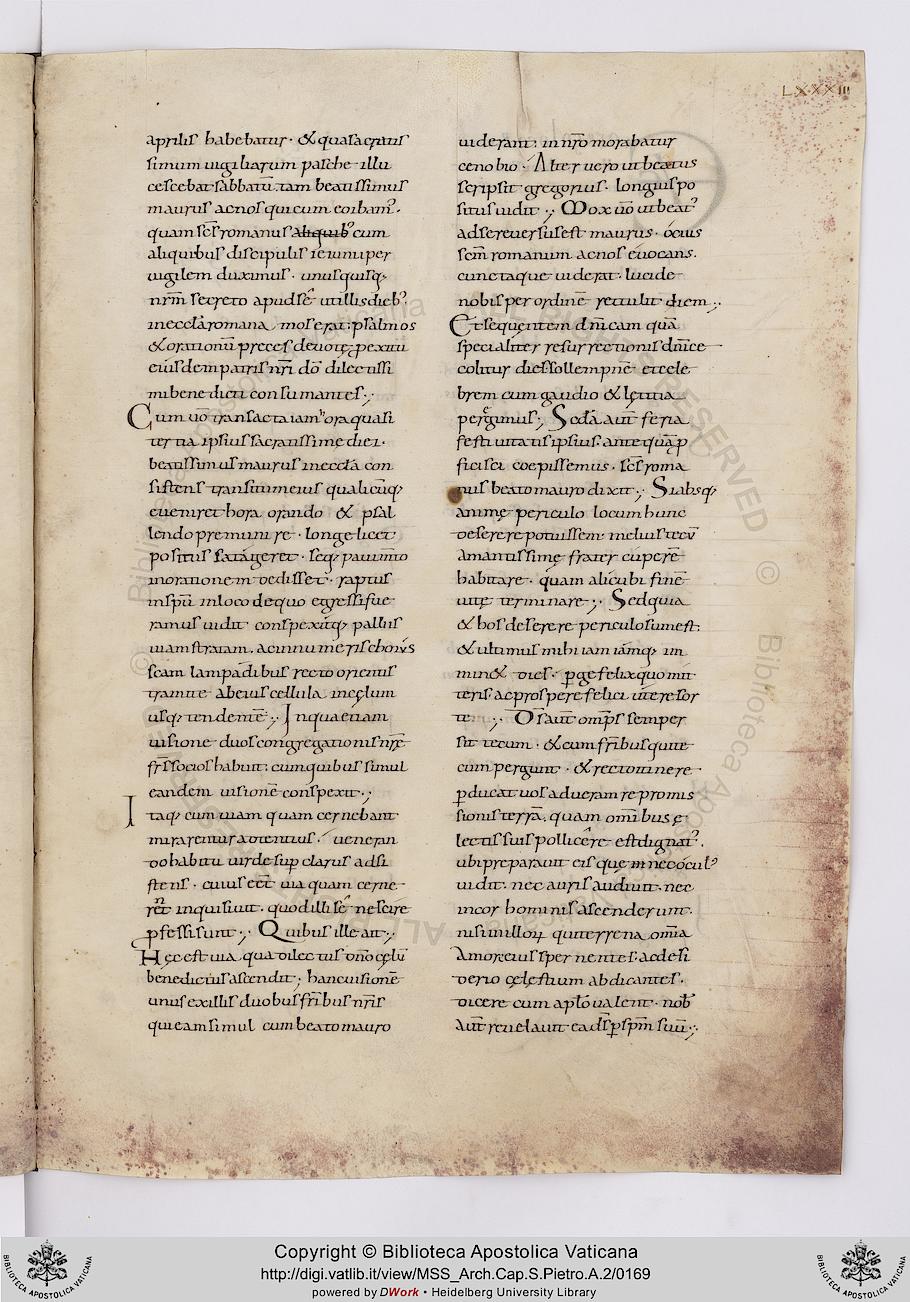 LXXXIII
aprilis habebatur· & qua sacratis
simum uigiliarum pasche illu
cescebat sabbatū. tam beatissimus
maurus ac nos qui cum eo ibam᾽.
quam sc̄s romanus aliquib᾽ cum
aliquibus discipulis ieiuni per
uigilem duximus· unusquisq;
nr̄m secreto apud sē ut illis dieb᾽
in eccl̄a romana mos erat: psalmos
& orationū preces deuotę p exitu
eiusdem patris nr̄i dō dilectissi
mi benedicti consumantes;
Cum uō transacta iam hora quasi
tertia ipsius sacratissime diei·
beatissimus maurus in eccl̄a con
sistens transitum eius qualicūq;
eueniret hora orando & psal
lendo premunire· longe licet
positus satageret· seq; pauimto
in orationem dedisset· raptus
in spū in loco de quo egressi fue
ramus uidit conspexitq; palliis
uiam stratam. ac innumeris choruscam lampadibus recto orientis
tramite ab eius cellula in cęlum
usq; tendentē; In qua etiam
uisione duos congregationis nr̄ę
fr̄s socios habuit: cum quibus simul
eandem uisionē conspexit;
Itaq; cum uiam quam cernebant
mirarentur adtentius· ueneran
do habitu uir desup clarus adsi
stens· cuius eēt uia quam cerne
rēt inquisiuit· quod illi sē nescire
pfessi sunt; Quibus ille ait;
Hęc est uia qua dilectus dn̄o cęlū
benedictus ascendit; hanc uisionē
unus ex illis duobus fr̄ibus nr̄is
qui eam simul cum beato mauro
uiderant: in nr̄o morabatur
cenobio· Alter uero ut beatus
scripsit gregorius· longius po
situs uidit; Mox uō ut beat᾽
ad se reuersus est maurus· ocius
sc̄m romanum ac nos euocans.
cuncta que uiderat· lucide
nobis per ordinē rettulit diem;
Et sequentem dn̄icam quā
specialiter resurrectionis dn̄ice
colitur dies sollempnē et cele
brem cum gaudio & lętitia
peregimus; Scd̄a aut̄ feria
festiuitatis ipsius. ante quā p
ficisci coepissemus· sc̄s roma
nus beato mauro dixit; Si absq;
animę periculo locum hunc
deserere potuissem· melius tecū
amantissime frater cuperē
habitare· quam alicubi finē
uitę terminare; Sed quia
& hos deserere periculosum est:
& ultimus mihi iam iāmq; im
min& dies· pge felix quo mit
teris· ac prospere felici utere sor
te; Ds̄ aut̄ omp̄s semper
sit tecum· & cum fr̄ibus qui te
cum pergunt· & recto itinere
pducat uos ad ueram repromis
sionis terrā. quam omibus ę
lectis suis pollicēre est dignat᾽.
ubi preparauit eis quę nec ocul᾽
uidit· nec auris audiuit· nec
in cor hominis ascenderunt·
nisi in illoꝝ qui terrena om̄ia
amore ius spernentes· ac desi
derio cęlestium abdicantes·
dicere cum apl̄o ualent· nob᾽
aut̄ reuelauit ea ds̄ p spm̄ suū;
Copyright © Biblioteca Apostolica Vaticana
http://digi.vatlib.it/view/MSS_Arch.Cap.S.Pietro.A.2/0169
powered by DWork • Heidelberg University Library
BIBLIOTECA APOSTOLICA VATICANA
BIBLIOTECA APOSTOLICA VATICANA